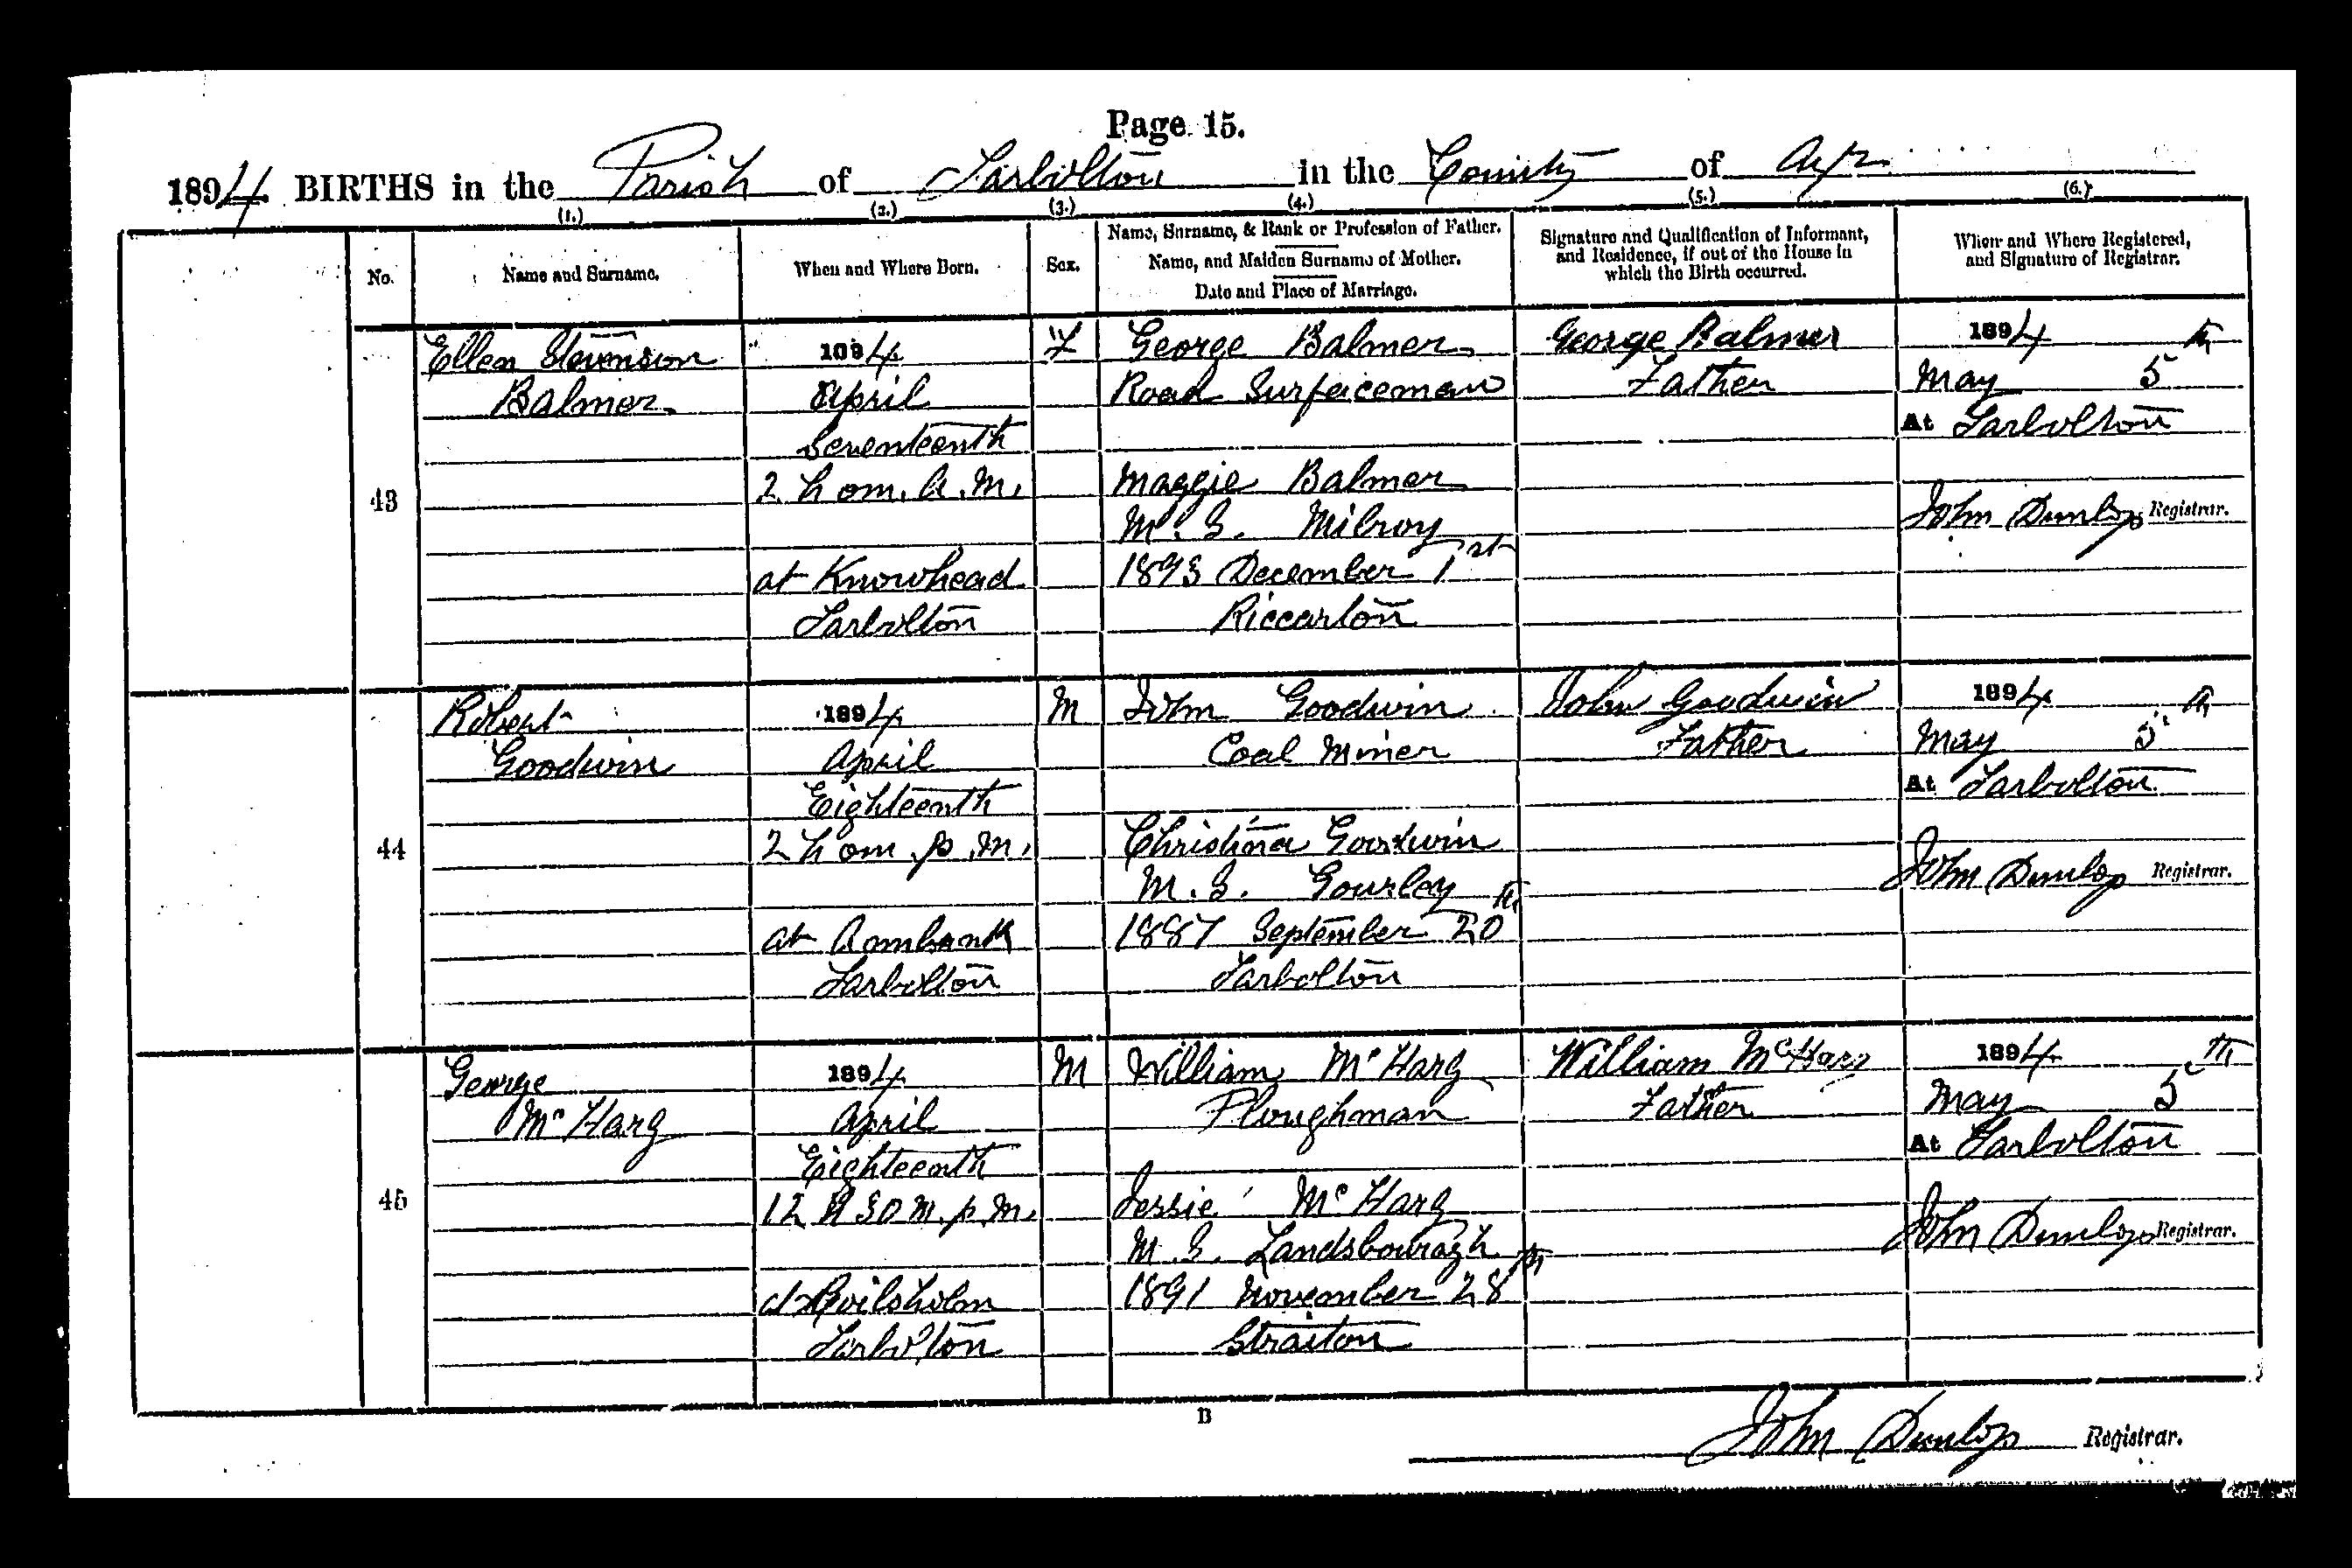 Page 15.
1894. BIRTHS in the Parish of Tarbolton in the County of Ayr
(1.) (2.) (3.) (4.) (5.) (6.)
No.
Name and Surname.
When and Where Born.
Sex.
Name, Surname, & Rank or Profession of Father.
Name, and Maiden Surname of Mother.
Date and Place of Marriage.
Signature and Qualification of Informant,
and Residence, if out of the House in
which the Birth occurred.
When and Where Registered,
and Signature of Registrar.
43
Ellen Stevenson
Balmer
1894
April
Seventeenth
2 h om. A.M.
at Knowhead
Tarbolton
F
George Balmer
Road Surfaceman
Maggie Balmer
M.S. Milroy
1893 December 1st
Riccarton
George Balmer
Father
1894
May 5th
At Tarbolton
John Dunlop Registrar.
44
Robert
Goodwin
1894
April
Eighteenth
2 h om. p.m.
at Annbank
Tarbolton
M
John Goodwin
Coal Miner
Christina Goodwin
M.S. Gourlay
1887 September 20th
Tarbolton
John Goodwin
Father
1894
May 5th
At Tarbolton
John Dunlop Registrar.
45
George
Mc Harg
1894
April
Eighteenth
12 h 30 m. p.m.
at
Tarbolton
M
William Mc Harg
Ploughman
Jessie Mc Harg
M.S. Landsbourogh
1891 November 28th
Straiton
William McHarg
Father
1894
May 5th
At Tarbolton
John Dunlop Registrar.
B
John Dunlop Registrar.